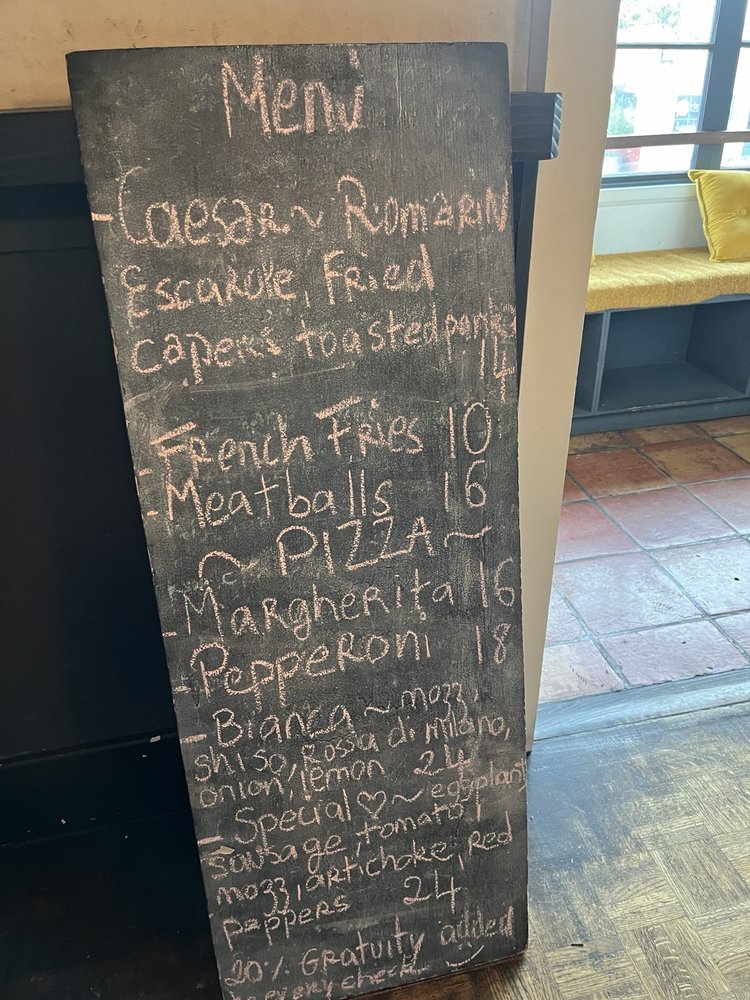 Menu
- Caesar ~ Romarin
Escarole, Fried
capers toasted panko
14
- French Fries 10
- Meatballs 16
~ PIZZA ~
- Margherita 16
- Pepperoni 18
- Bianca ~ mozz,
shiso, Rossa di Milano,
onion, lemon 24
- Special ♡ ~ eggplant
sausage, tomato,
mozz, artichoke, Red
peppers 24
20% Gratuity added
to every check